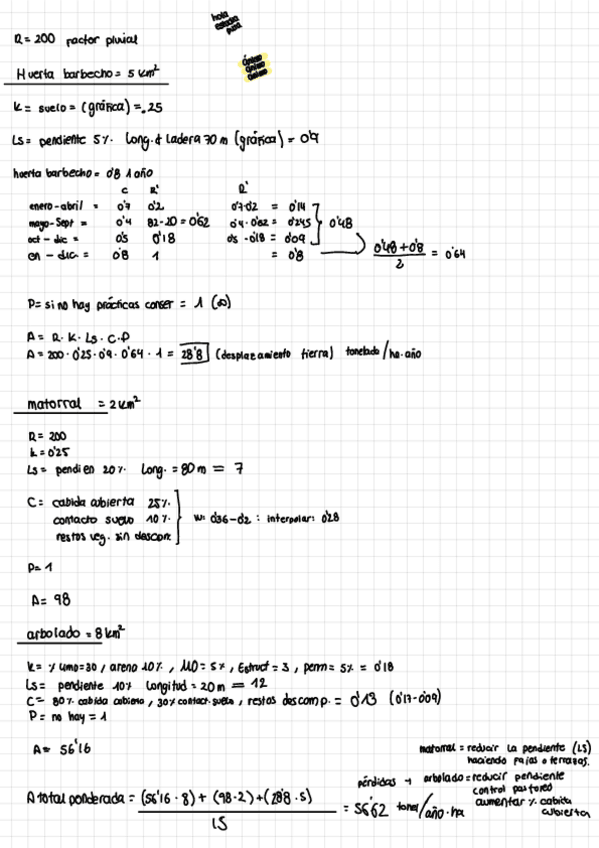 hola
estado
pura
R = 200 factor pluvial
Ónimo
ónimo
ónimo
Huerta barbecho = 5 km²
K = suelo = (gráfica) = .25
Ls = pendiente 5%. Long. d ladera 70 m (gráfica) = 0'9
huerta barbecho = 0'8 1 año
C R' R'
enero-abril = 0'7 0'2 0'7·0'2 = 0'14
mayo-Sept = 0'4 82-20 = 0'62 0'4·0'62 = 0'245 0'48
oct - dic = 0'5 0'18 0'5 · 0'18 = 0'09
en - dic = 0'8 1 = 0'8
0'48 + 0'8 / 2 = 0'64
P = si no hay prácticas conser = 1
A = R · K · Ls · C · P
A = 200 · 0'25 · 0'9 · 0'64 · 1 = 28'8 (desplazamiento tierra) tonelada/ha·año
matorral = 2 km²
R = 200
k = 0'25
Ls = pendien 20%. Long. = 80 m = 7
C = cabida abierta 25%.
contacto suelo 10%.
restos veg. sin descom.
W: 0'36-0'2 : interpolar: 0'28
P = 1
A = 98
arbolado = 8 km²
K = % limo = 30 / arena 10%, MO = 5%, Estruct = 3, perm = 5% = 0'18
Ls = pendiente 10% longitud = 20m = 12
C = 80%. cabida cubierta, 30% contact. suelo, restos descomp. = 0'13 (0'17-0'09)
P = no hay = 1
A = 56'16
matorral = reducir la pendiente (LS)
haciendo fajas o terrazas.
pérdidas → arbolado = reducir pendiente
control pastoreo
aumentar %. cabida
cubierta
A total ponderada = (56'16 · 8) + (98·2) + (28'8 · 5) / 15 = 56'62 tonel/año·ha